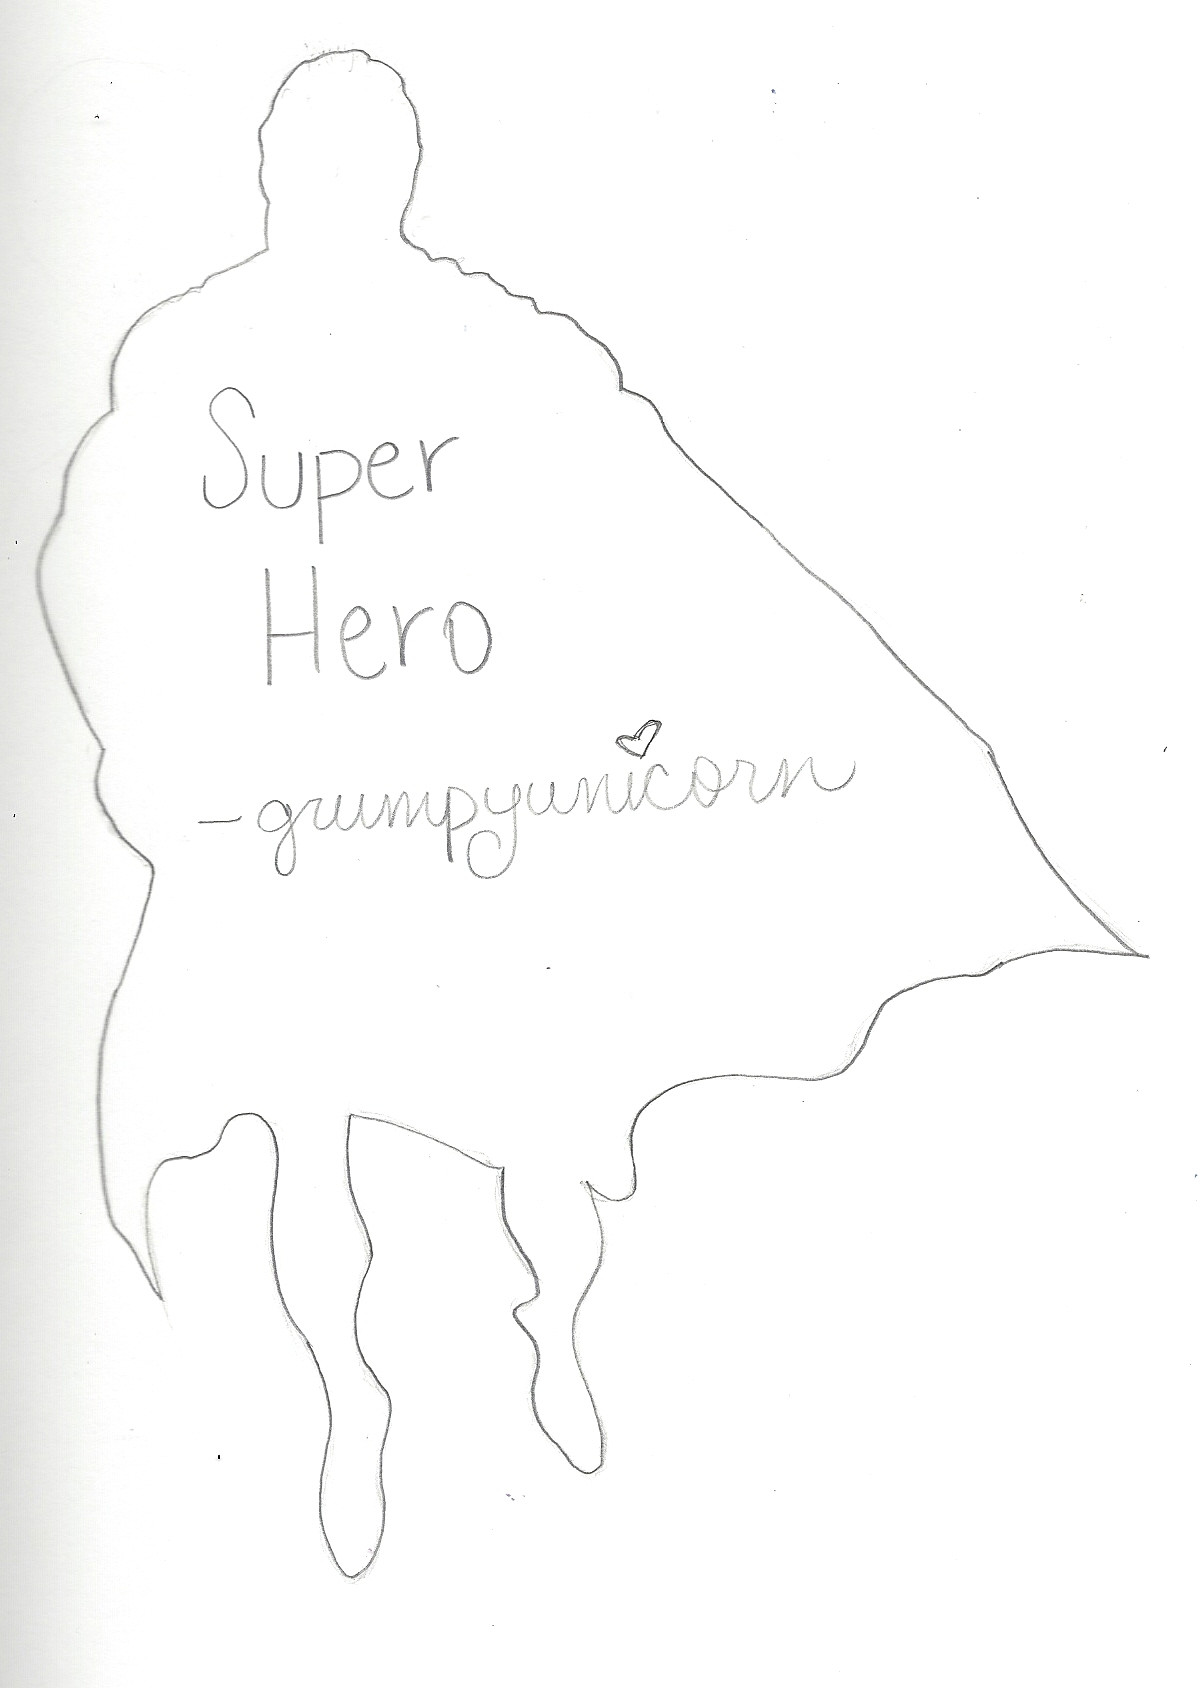 Super
Hero
-grumpyunicorn